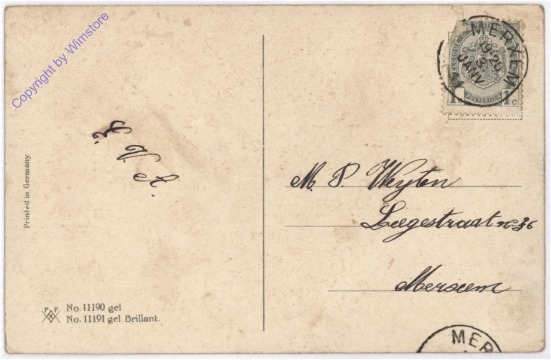 Copyright by Wimstore
MERXEM
JANV
Printed in Germany.
M. P. Weyten
Leegestraat no 36
Merxem
No. 11190 gel
No. 11191 gel Brillant.
MER